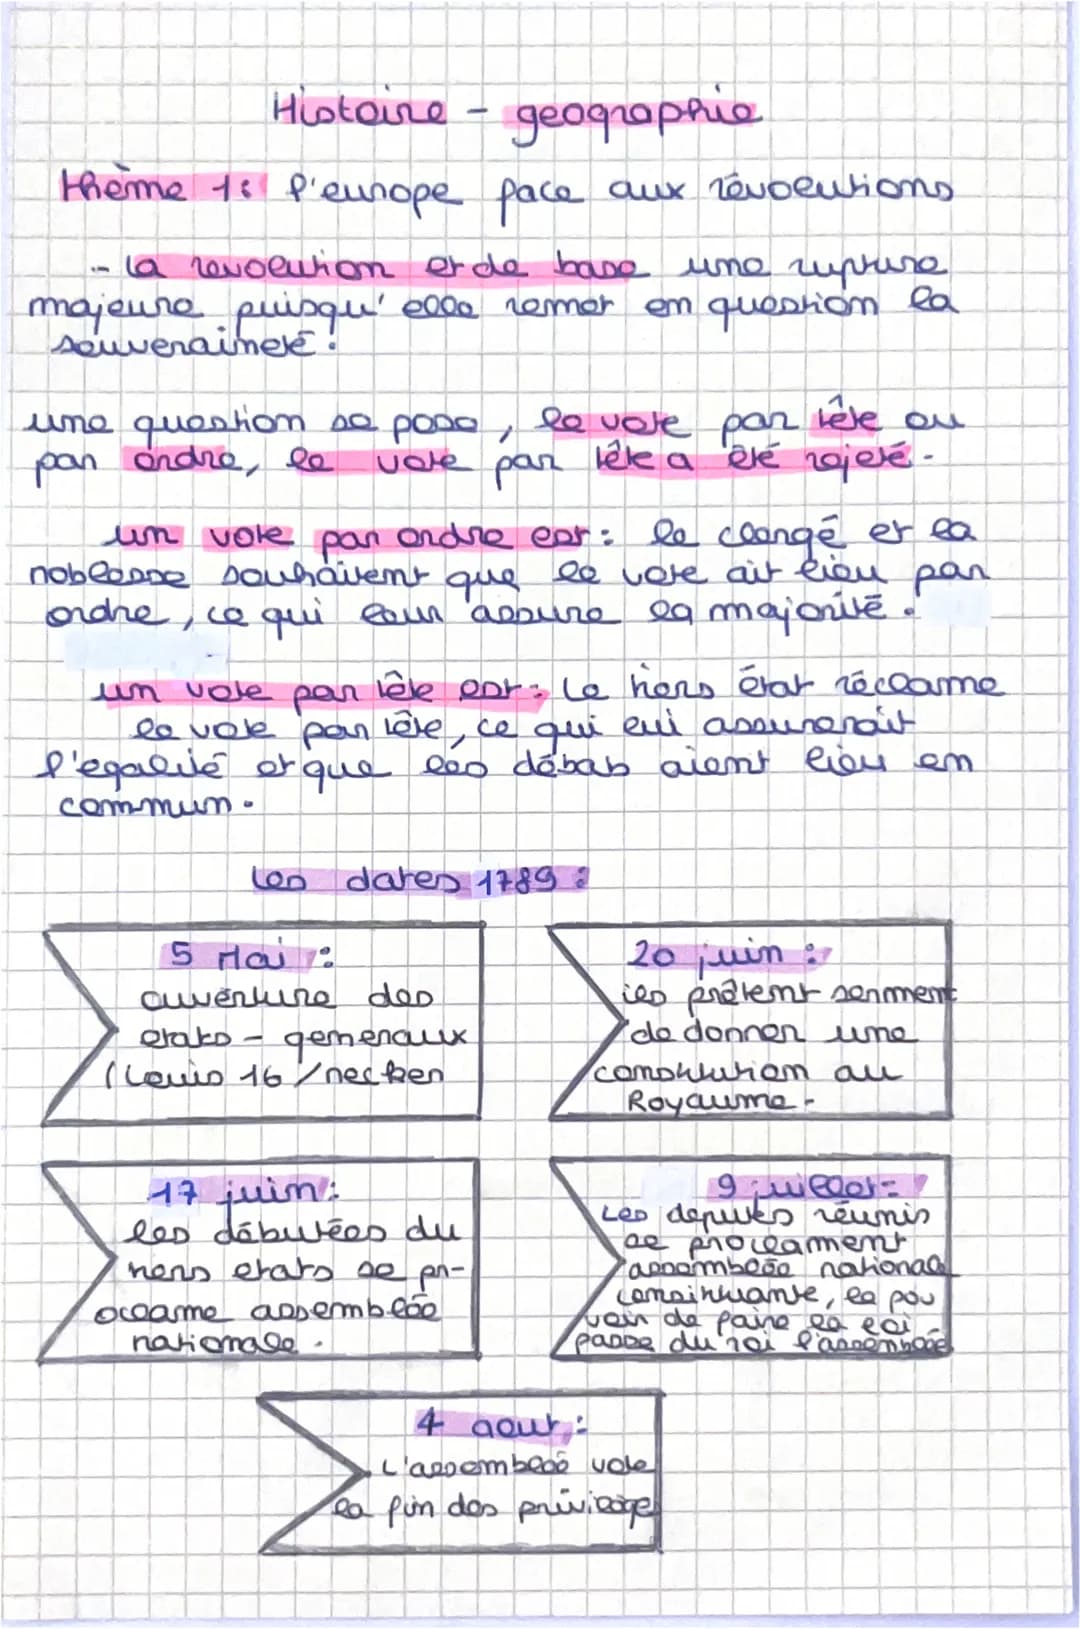 Histoire - geographie
thème 1: l'europe face aux révolutions
- la revolution et de base une rupture
majeure puisqu'elle remet en question la
souveraineté.
une question se pose, le vote par tête ou
par ordre, le vote par tête a été rejeté.
un vote par ordre est: le clergé et la
noblesse souhaitent que le vote ait lieu par
ordre, ce qui leur assure la majorité.
un vote par tête est: Le tiers état réclame
le vote par tête, ce qui lui assurerait
l'egalité et que les débats aient lieu en
commun.
Les dates 1789:
5 Mai:
ouverture des
etats-generaux
(Louis 16/necker
20 juin:
ies prêtent serment
de donner une
constitution au
Royaume.
17 juin:
les débutées du
tiers etats se pr-
oclame assemblée
nationale.
9 juillet:
Les deputés réunis
se proclament
assemblée national
constituante, le pou
voir de faire la loi
passe du roi l'assemblée
4 aout:
L'assemblée vote
la fin des privilège